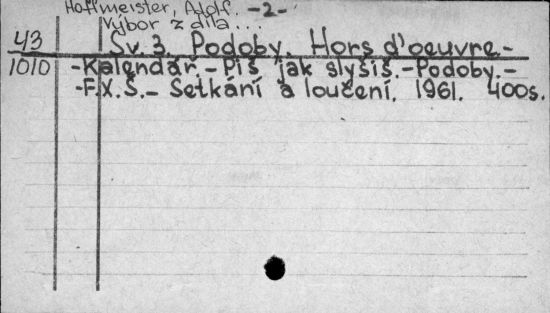 Hoffmeister, Adolf. -2-
Výbor z díla...
43 Sv. 3. Podoby. Hors d'oeuvre-
1010 -Kalendář.-Piš jak slyšíš.-Podoby.-
-F.X.Š.- Setkání a loučení. 1961. 400s.